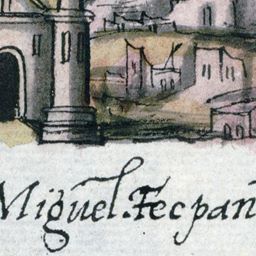 Miguel. Tecpan